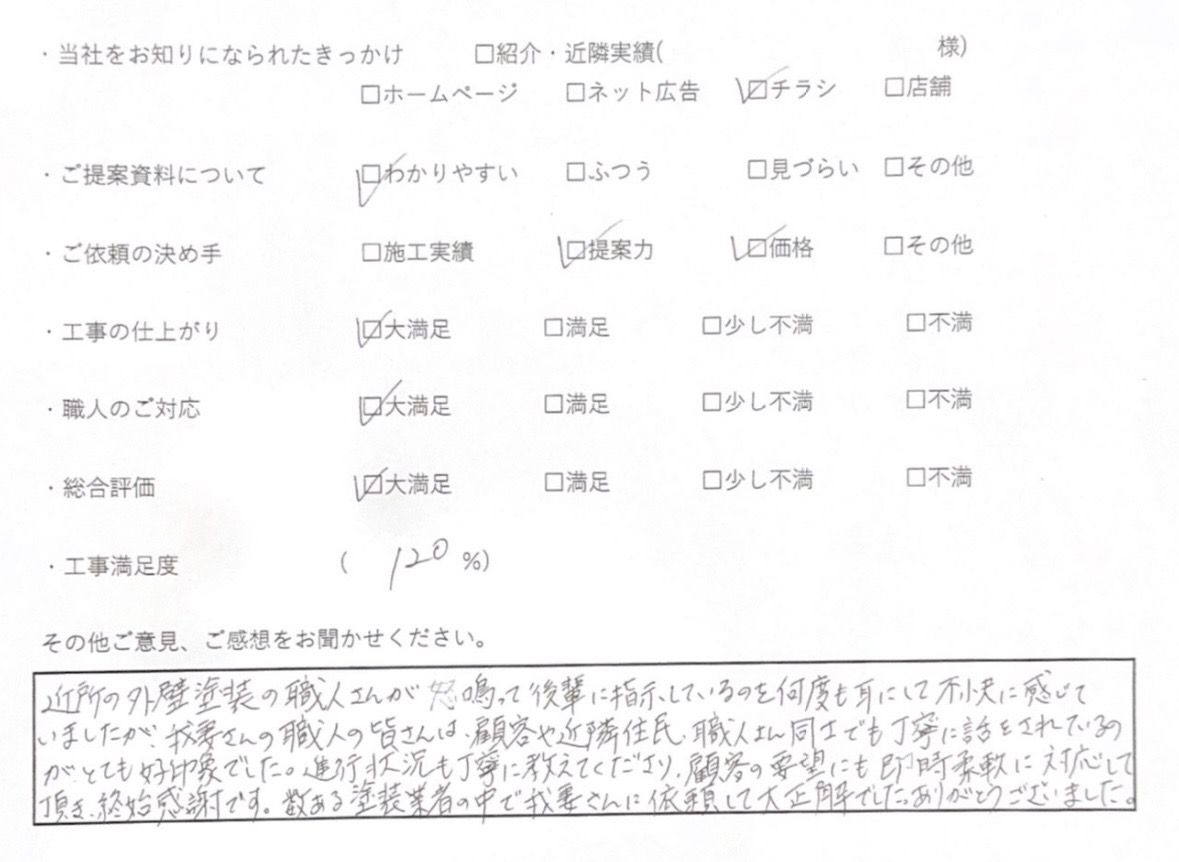 ・当社をお知りになられたきっかけ □紹介・近隣実績( 様)
□ホームページ □ネット広告 ☑チラシ □店舗
・ご提案資料について ☑わかりやすい □ふつう □見づらい □その他
・ご依頼の決め手 □施工実績 ☑提案力 ☑価格 □その他
・工事の仕上がり ☑大満足 □満足 □少し不満 □不満
・職人のご対応 ☑大満足 □満足 □少し不満 □不満
・総合評価 ☑大満足 □満足 □少し不満 □不満
・工事満足度 ( 120 %)
その他ご意見、ご感想をお聞かせください。
近所の外壁塗装の職人さんが怒鳴って後輩に指示しているのを何度も耳にして不快に感じて
いましたが、我妻さんの職人の皆さんは、顧客や近隣住民、職人さん同士でも丁寧に話をされているの
がとても好印象でした。進行状況も丁寧に教えてくださり、顧客の要望にも即時柔軟に対応して
頂き、終始感謝です。数ある塗装業者の中で我妻さんに依頼して大正解でした。ありがとうございました。